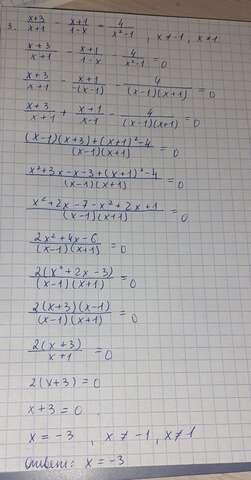 3. (x+3)/(x+1) - (x+1)/(1-x) - 4/(x²-1) , x≠-1, x≠1
(x+3)/(x+1) - (x+1)/(1-x) - 4/(x²-1) = 0
(x+3)/(x+1) - (x+1)/(-(x-1)) - 4/((x-1)(x+1)) = 0
(x+3)/(x+1) + (x+1)/(x-1) - 4/((x-1)(x+1)) = 0
((x-1)(x+3)+(x+1)²-4)/((x-1)(x+1)) = 0
(x²+3x-x-3+(x+1)²-4)/((x-1)(x+1)) = 0
(x²+2x-7-x²+2x+1)/((x-1)(x+1)) = 0
(2x²+4x-6)/((x-1)(x+1)) = 0
(2(x²+2x-3))/((x-1)(x+1)) = 0
(2(x+3)(x-1))/((x-1)(x+1)) = 0
(2(x+3))/(x+1) = 0
2(x+3) = 0
x+3 = 0
x = -3 , x≠-1, x≠1
Ответ: x = -3